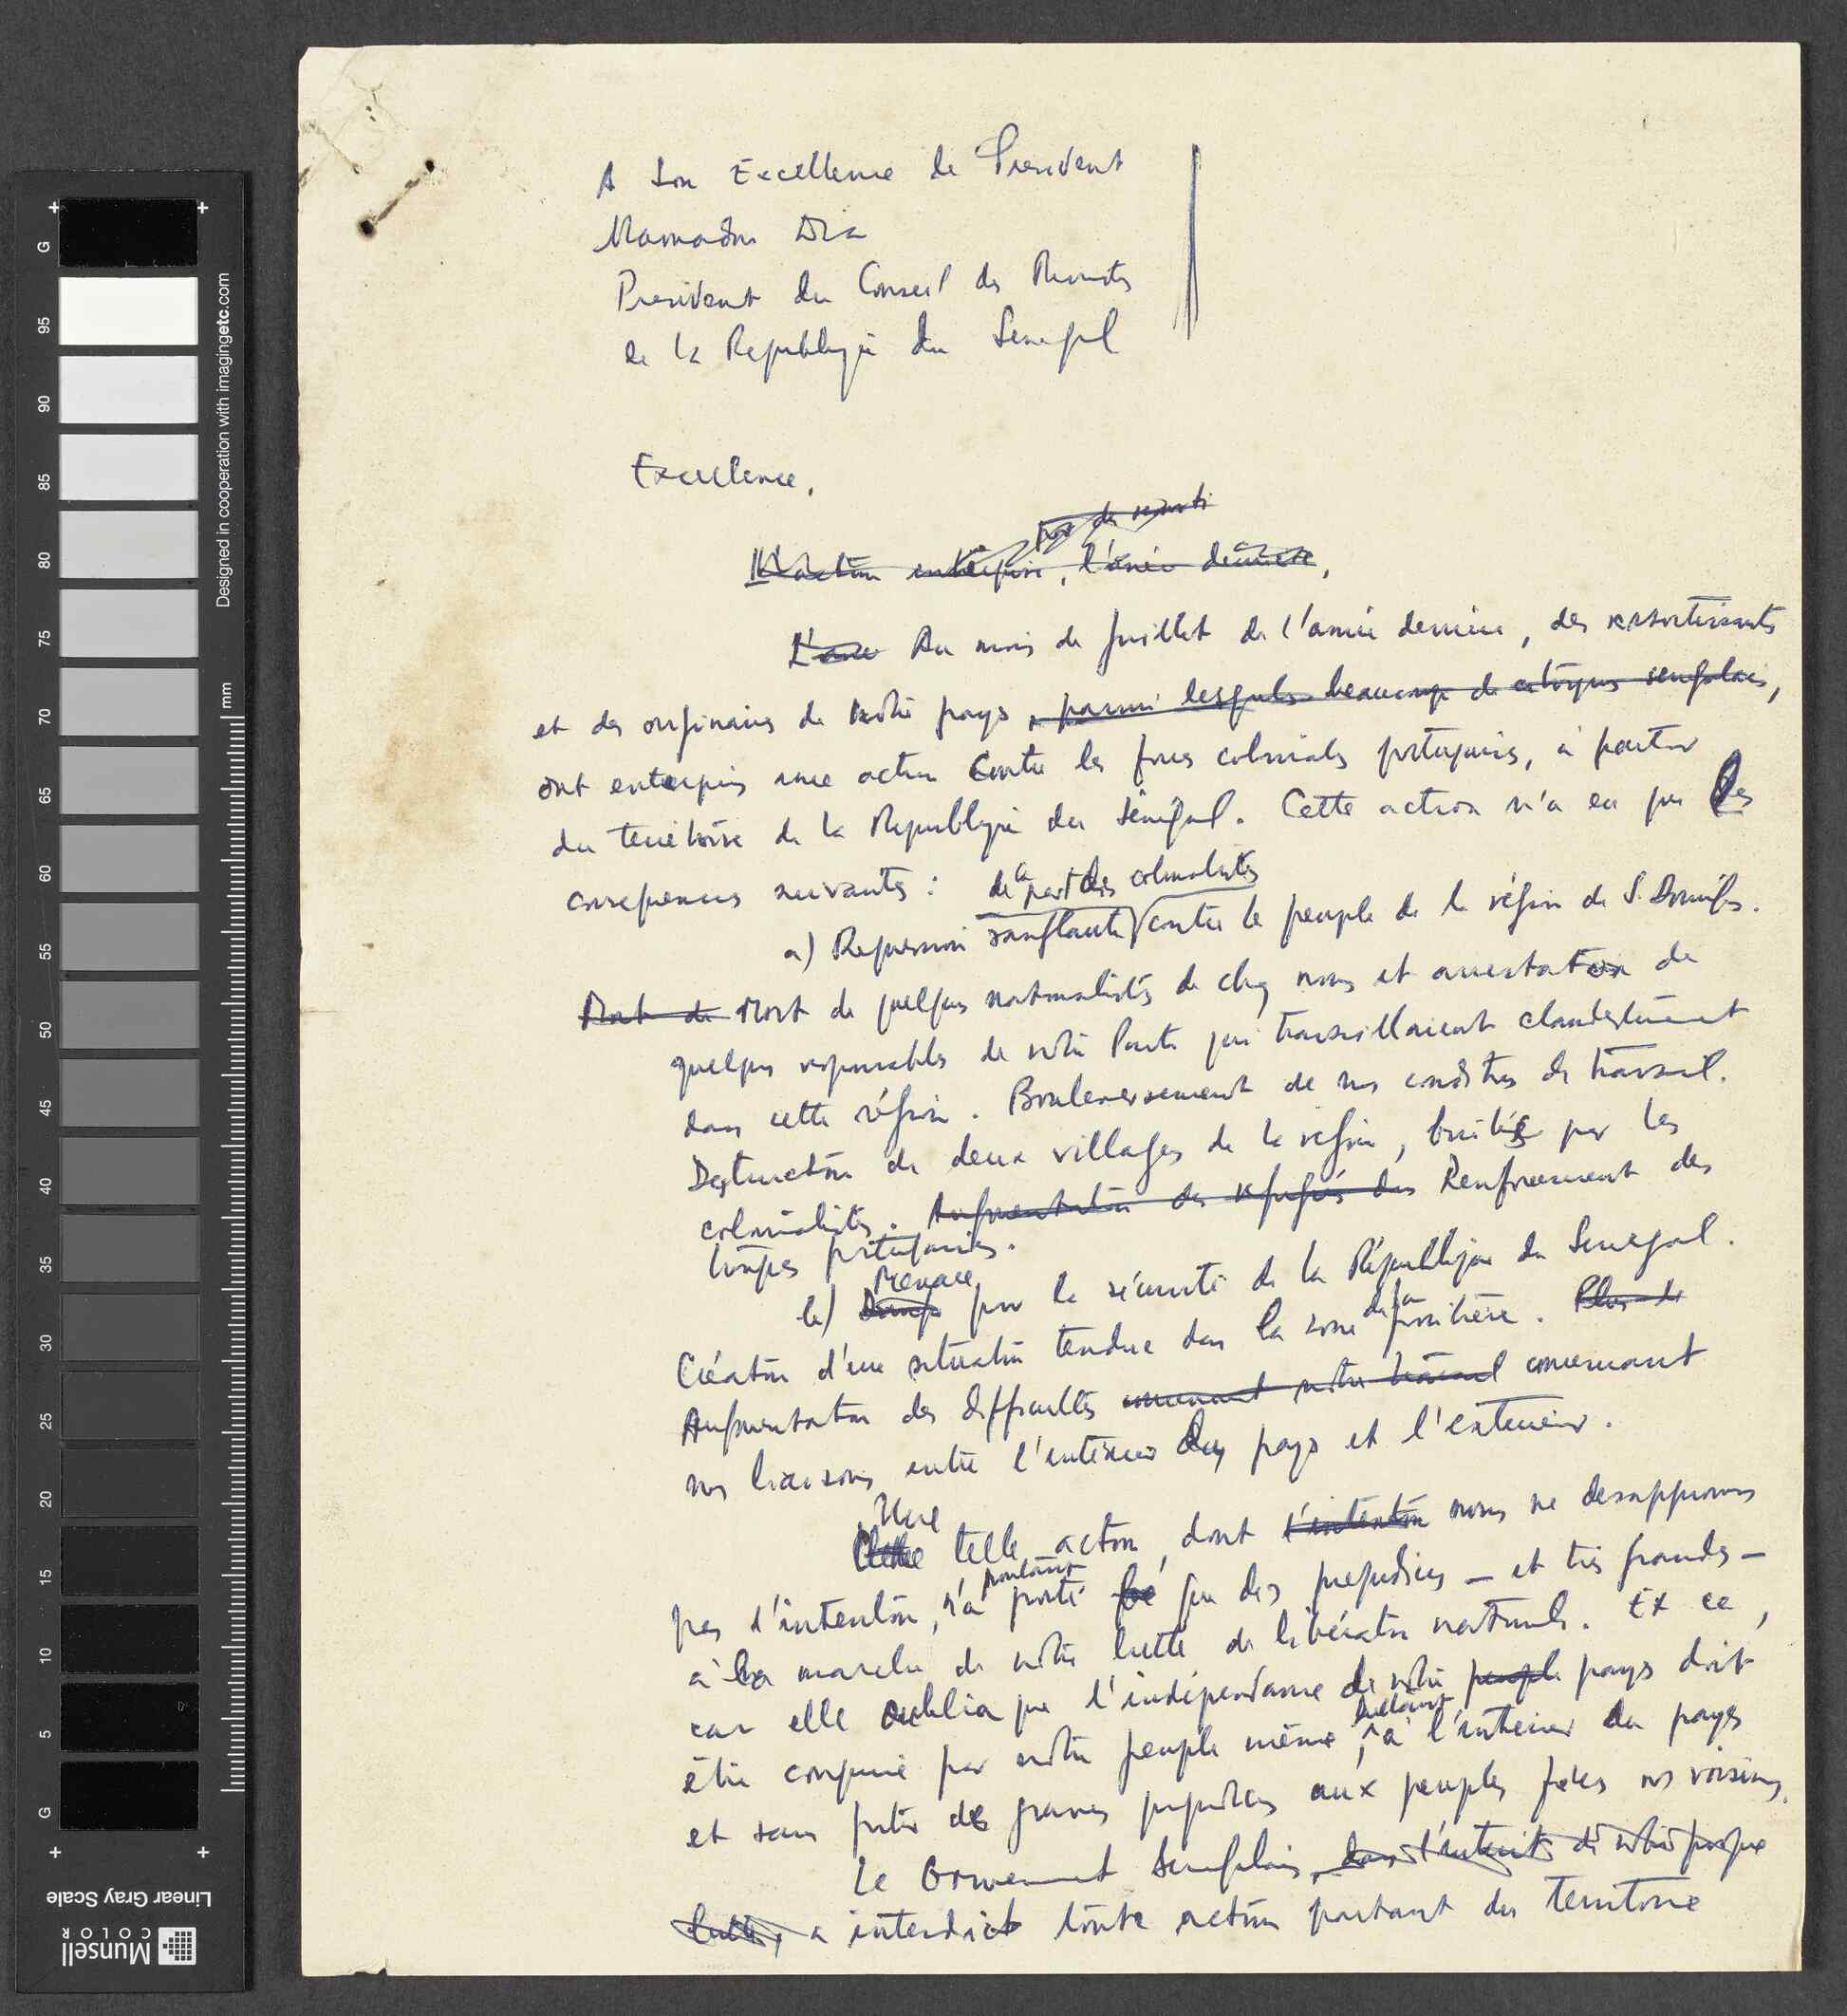 A Son Excellence le President
Mamadou Dia
President du Conseil des Ministres
de la Republique du Senegal
Excellence,
pour des
L'action entreprise, l'année dernière,
L'ane Au mois de Juillet de l'année dernière, des ressortissants
et des originaires de notre pays, parmi lesquels beaucoup de citoyens senegalais,
ont entrepris une action contre les forces coloniales portugaises, à partir
du territoire de la Republique du Sénégal. Cette action n'a eu que les
consequences suivantes :
de la part des colonialistes
a) Repression sanglante contre le peuple de la région de S. Domingos.
Mort de Mort de quelques nationalistes de chez nous et arrestation de
quelques responsables de notre Parti qui travaillaient clandestinement
dans cette région. Bouleversement de nos conditions de travail.
Destruction de deux villages de la region, brulés par les
colonialistes. Augmentation des refugiés des Renforcement des
troupes portugaises.
Menace
b) Danger pour la sécurité de la République du Senegal.
Création d'une situation tendue dans la zone de la frontière. Plus de
Augmentation des difficultés concernant notre travail concernant
nos liaisons entre l'intérieur du pays et l'exterieur.
Une
Cette telle action, dont l'intention nous ne desapprouvons
pas l'intention, n'a pourtant porté que des prejudices - et très grands -
à la marche de notre lutte de libération nationale. Et ce,
car elle oublia que l'indépendance de notre peuple pays doit
être conquise par notre peuple même, luttant à l'interieur du pays
et sans porter de graves prejudices aux peuples frères nos voisins.
Le Gouvernement Senegalais, dans l'interêt de notre propre
lutte, a interdict toute action partant du territoire
Designed in cooperation with imagingetc.com
mm
G 95 90 85 80 75 70 65 60 55 50 45 40 35 30 25 20 15 10 5 G
Linear Gray Scale
Munsell
COLOR